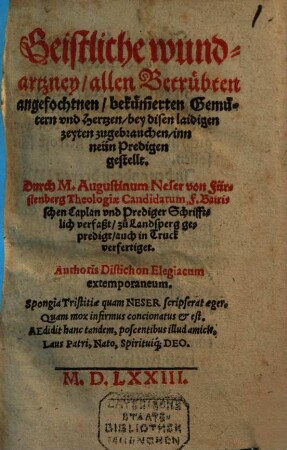 Geistliche wund-
artzney / allen Betrübten
angefochtnen / bekümerten Gemü-
tern vnd Hertzen / bey disen laidigen
zeyten zugebrauchen / inn
neün Predigen
gestellt.
Durch M. Augustinum Neser von Für-
stenberg Theologiæ Candidatum, F. Bairi-
schen Caplan vnd Prediger Schrifft-
lich verfaßt / zů Landsperg ge-
predigt / auch in Truck
verfertiget.
Authoris Distichon Elegiacum
extemporaneum.
Spongia Tristitiæ quam NESER scripserat æger,
Quam mox infirmus concionatus & est.
AEdidit hanc tandem, poscentibus illud amicis,
Laus Patri, Nato, Spirituiq; DEO.
M. D. LXXIII.
BAYERISCHE
STAATS-
BIBLIOTHEK
MUENCHEN